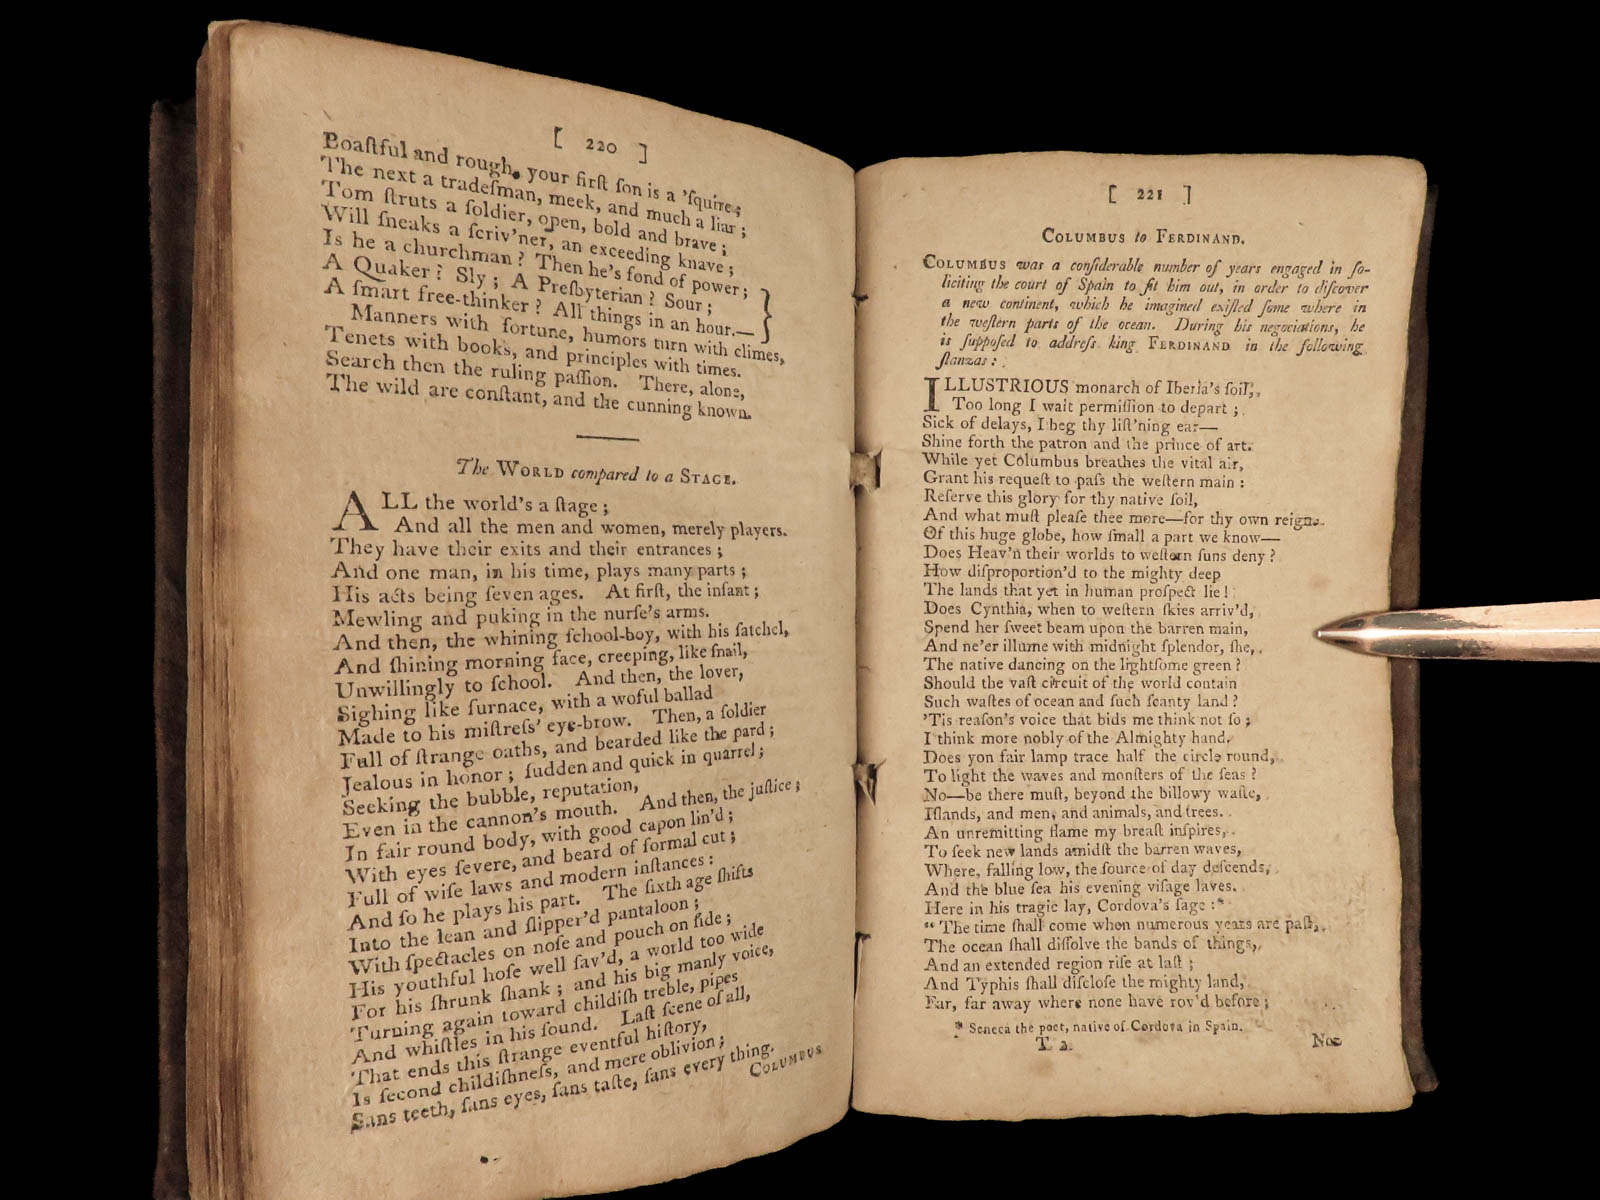 [ 220 ]
Boaſtful and rough, your firſt ſon is a 'ſquire;
The next a tradeſman, meek, and much a liar;
Tom ſtruts a ſoldier, open, bold and brave;
Will ſneaks a ſcriv'ner, an exceeding knave;
Is he a churchman? Then he's fond of power;
A Quaker? Sly; A Preſbyterian? Sour;
A ſmart free-thinker? All things in an hour.—
Manners with fortune, humors turn with climes,
Tenets with books, and principles with times.
Search then the ruling paſſion. There, alone,
The wild are conſtant, and the cunning known.
The WORLD compared to a STAGE.
ALL the world's a ſtage;
And all the men and women, merely players.
They have their exits and their entrances;
And one man, in his time, plays many parts;
His acts being ſeven ages. At firſt, the infant;
Mewling and puking in the nurſe's arms.
And then, the whining ſchool-boy, with his ſatchel,
And ſhining morning face, creeping, like ſnail,
Unwillingly to ſchool. And then, the lover,
Sighing like furnace, with a woful ballad
Made to his miſtreſs' eye-brow. Then, a ſoldier
Full of ſtrange oaths, and bearded like the pard;
Jealous in honor; ſudden and quick in quarrel;
Seeking the bubble, reputation,
Even in the cannon's mouth. And then, the juſtice;
In fair round body, with good capon lin'd;
With eyes ſevere, and beard of formal cut;
Full of wiſe laws and modern inſtances:
And ſo he plays his part. The ſixth age ſhifts
Into the lean and ſlipper'd pantaloon;
With ſpectacles on noſe and pouch on ſide;
His youthful hoſe well ſav'd, a world too wide
For his ſhrunk ſhank; and his big manly voice,
Turning again toward childiſh treble, pipes
And whiſtles in his ſound. Laſt ſcene of all,
That ends this ſtrange eventful hiſtory,
Is ſecond childiſhneſs, and mere oblivion;
Sans teeth, ſans eyes, ſans taſte, ſans every thing.
COLUMBUS
[ 221 ]
COLUMBUS to FERDINAND.
COLUMBUS was a conſiderable number of years engaged in ſo-
liciting the court of Spain to fit him out, in order to diſcover
a new continent, which he imagined exiſted ſome where in
the weſtern parts of the ocean. During his negociations, he
is ſuppoſed to addreſs king FERDINAND in the following
ſtanzas:
ILLUSTRIOUS monarch of Iberia's ſoil,
Too long I wait permiſſion to depart;
Sick of delays, I beg thy liſt'ning ear—
Shine forth the patron and the prince of art.
While yet Columbus breathes the vital air,
Grant his requeſt to paſs the weſtern main:
Reſerve this glory for thy native ſoil,
And what muſt pleaſe thee more—for thy own reign.
Of this huge globe, how ſmall a part we know—
Does Heav'n their worlds to weſtern ſuns deny?
How diſproportion'd to the mighty deep
The lands that yet in human proſpect lie!
Does Cynthia, when to weſtern ſkies arriv'd,
Spend her ſweet beam upon the barren main,
And ne'er illume with midnight ſplendor, ſhe,
The native dancing on the lightſome green?
Should the vaſt circuit of the world contain
Such waſtes of ocean and ſuch ſcanty land?
'Tis reaſon's voice that bids me think not ſo;
I think more nobly of the Almighty hand.
Does yon fair lamp trace half the circle round,
To light the waves and monſters of the ſeas?
No—be there muſt, beyond the billowy waſte,
Iſlands, and men, and animals, and trees.
An unremitting flame my breaſt inſpires,
To ſeek new lands amidſt the barren waves,
Where, falling low, the ſource of day deſcends,
And the blue ſea his evening viſage laves.
Here in his tragic lay, Cordova's ſage:*
" The time ſhall come when numerous years are paſt,
The ocean ſhall diſſolve the bands of things,
And an extended region riſe at laſt;
And Typhis ſhall diſcloſe the mighty land,
Far, far away where none have rov'd before;
* Seneca the poet, native of Cordova in Spain.
T 2
Nor